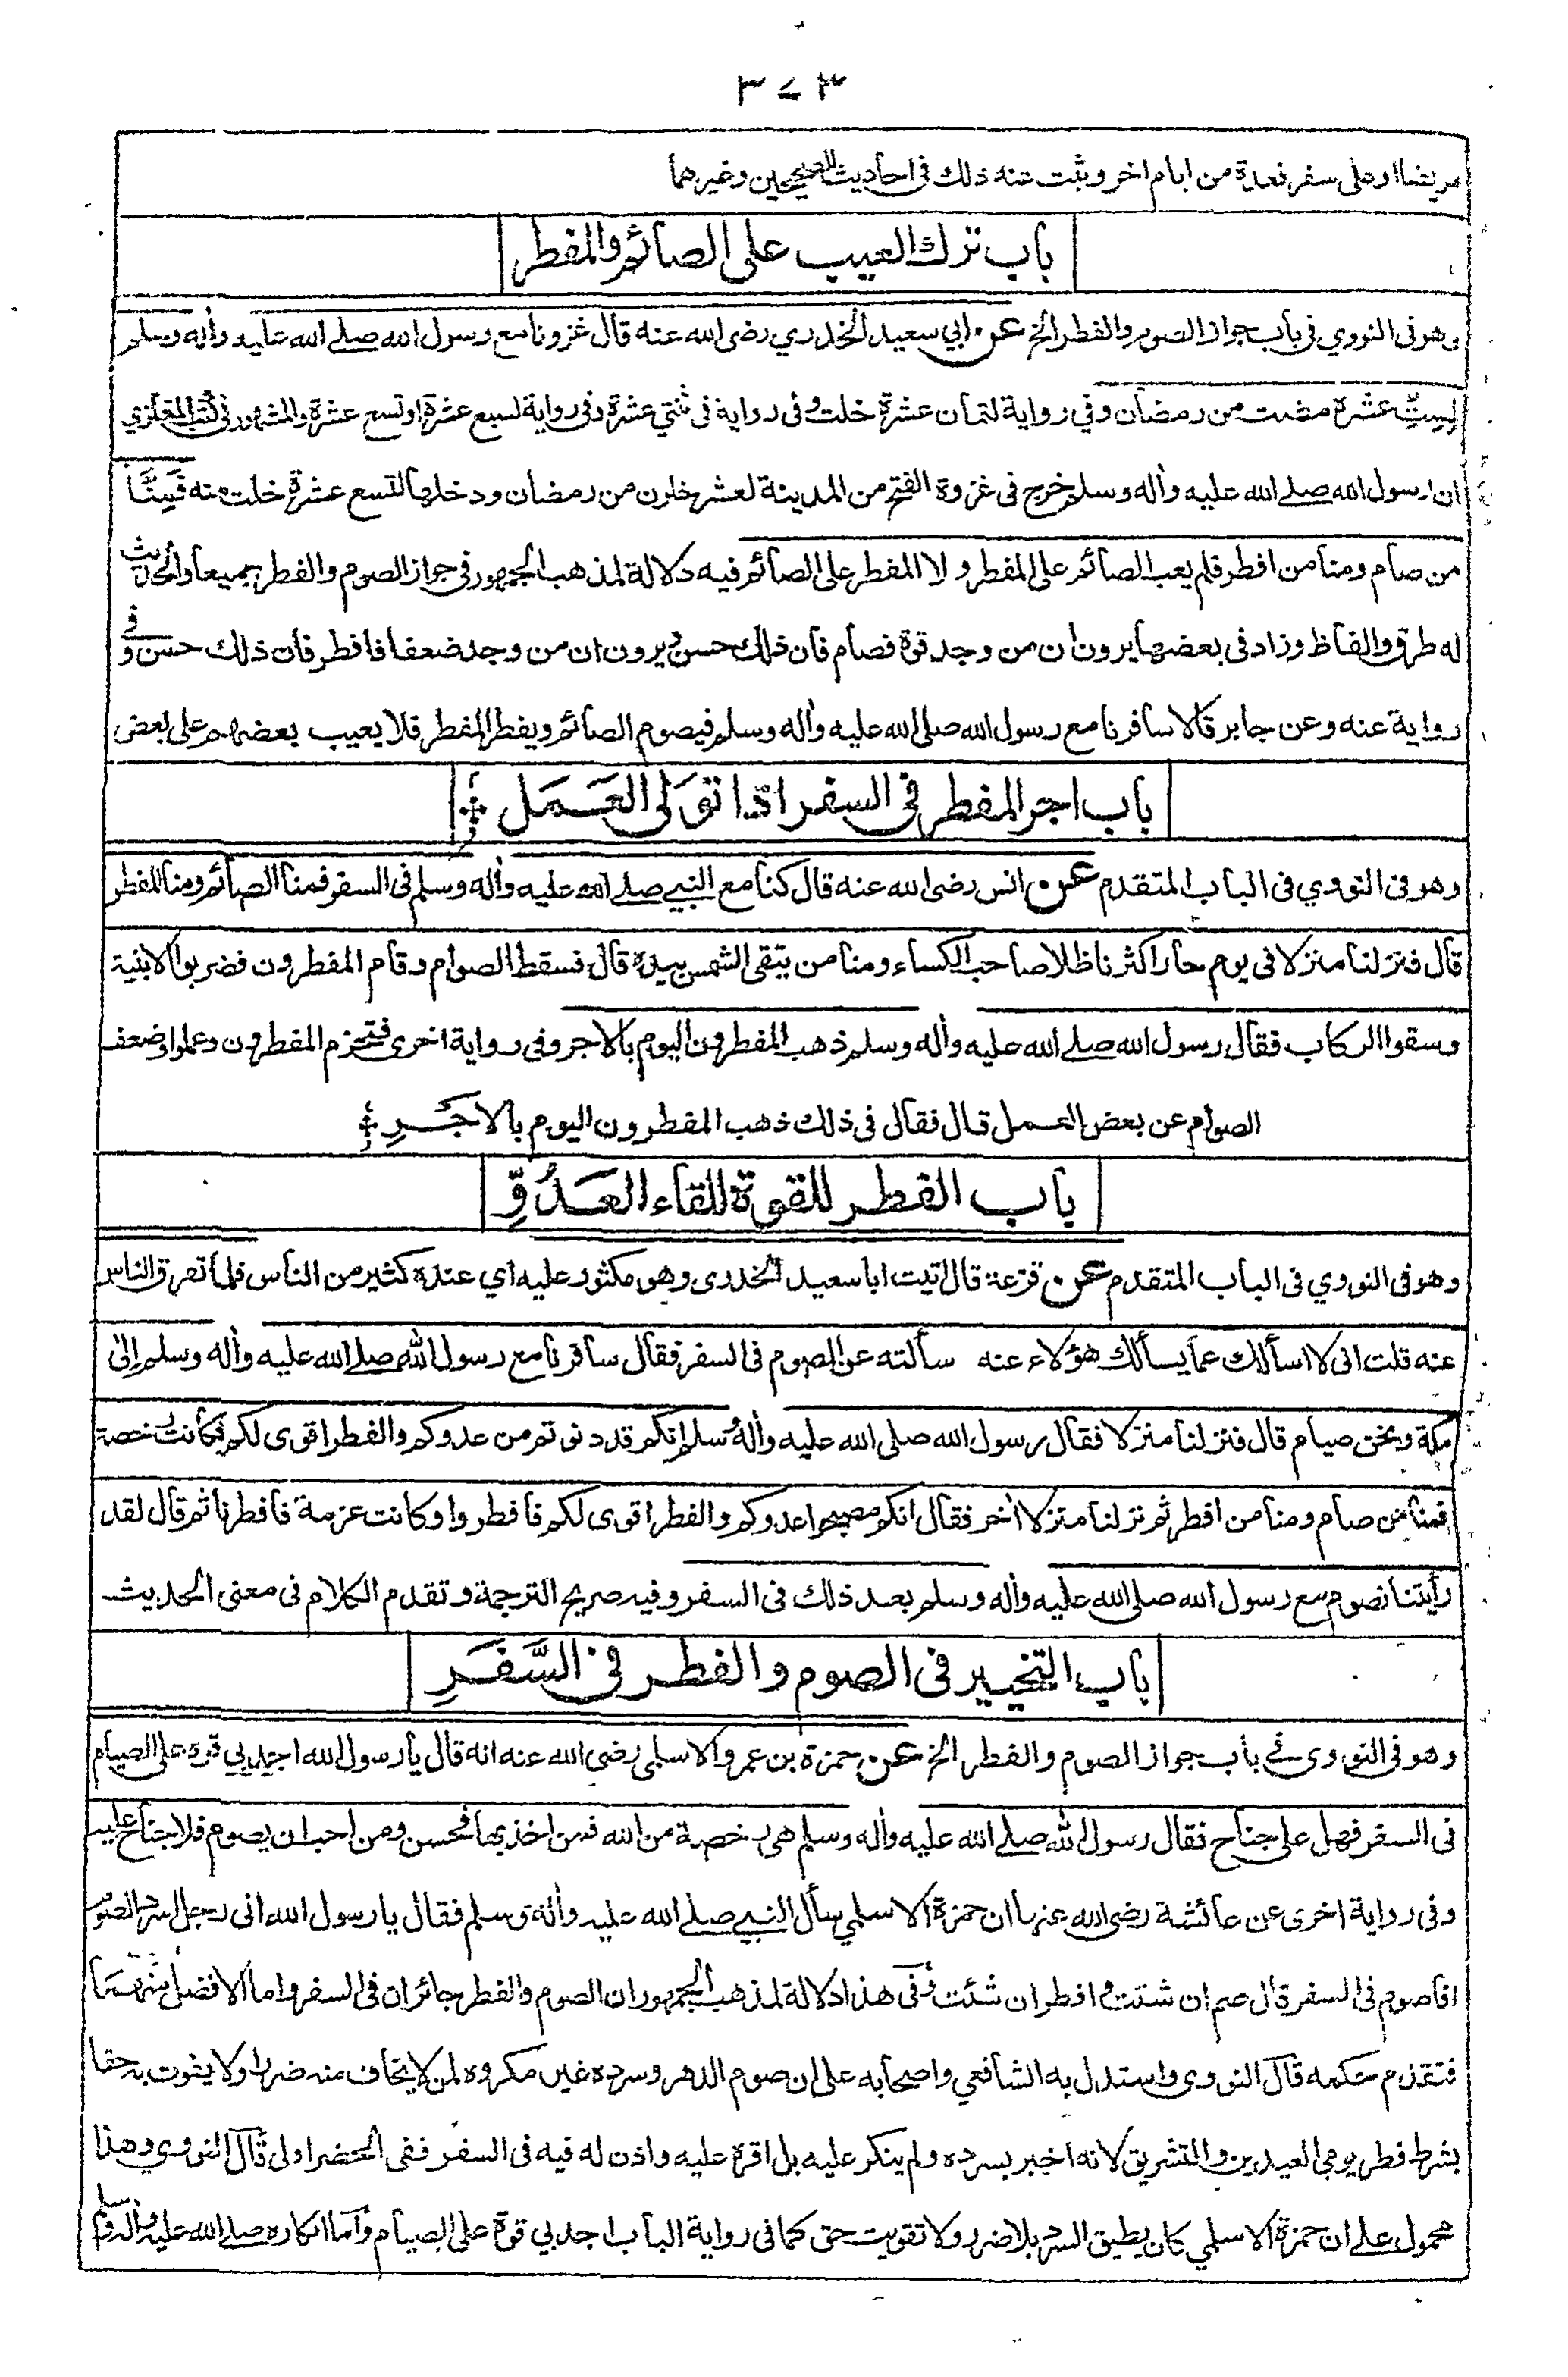 ٣٧٣
مريضا او على سفر فعدة من ايام اخر وثبت عنه ذلك فى احاديث الصحيحين وغيرهما
باب ترك العيب على الصائم والمفطر
وهو فى النووي فى باب جواز الصوم والفطر الخ عن ابي سعيد الخدري رضى الله عنه قال غزونا مع رسول الله صلے الله عليه واٰله وسلم
لِسِتّ عشرة مضت من رمضان وفي رواية لثمان عشرة خلت وفى رواية فى ثنتي عشرة وفى رواية لسبع عشرة او تسع عشرة والمشهور فى كتب المغازي
ان رسول الله صلے الله عليه واٰله وسلم خرج فى غزوة الفتح من المدينة لعشر خلون من رمضان ودخلها لتسع عشرة خلت منه فَمِنَّا
من صام ومنا من افطر فلم يعب الصائم على المفطر ولا المفطر على الصائم فيه دلالة لمذهب الجمهور فى جواز الصوم والفطر جميعا والحديث
له طرق والفاظ وزاد فى بعضها يرون ان من وجد قوة فصام فان ذلك حسن ويرون ان من وجد ضعفا فافطر فان ذلك حسن وفي
رواية عنه وعن جابر قالا سافرنا مع رسول الله صلى الله عليه واٰله وسلم فيصوم الصائم ويفطر المفطر فلا يعيب بعضهم على بعض
باب اجر المفطر فى السفر اذا تَوَلى العَمَل
وهو فى النووي فى الباب المتقدم عن انس رضى الله عنه قال كنا مع النبي صلے الله عليه واٰله وسلم فى السفر فمنا الصائم ومنا المفطر
قال فنزلنا منزلا فى يوم حار اكثرنا ظلا صاحب الكساء ومنا من يتقى الشمس بيده قال فسقط الصوام وقام المفطرون فضربوا الابنية
وسقوا الركاب فقال رسول الله صلے الله عليه واٰله وسلم ذهب المفطرون اليوم بالاجر وفى رواية اخرى فتحزم المفطرون وعملوا وضعف
الصوام عن بعض العمل قال فقال فى ذلك ذهب المفطرون اليوم بالاجْرِ
باب الفطر للقوة للقاء العَدُوِّ
وهو فى النووي فى الباب المتقدم عن قزعة قال اتيت ابا سعيد الخدرى وهو مكثور عليه اي عنده كثير من الناس فلما تفرق الناس
عنه قلت انى لا اسألك عما يسألك هؤلاء عنه سألته عن الصوم فى السفر فقال سافرنا مع رسول الله صلے الله عليه واٰله وسلم اِلىٰ
مكة ونحن صيام قال فنزلنا منزلا فقال رسول الله صلى الله عليه واٰله وسلم انكم قد دنوتم من عدوكم والفطر اقوى لكم فكانت رخصة
فمنا من صام ومنا من افطر ثم نزلنا منزلا اٰخر فقال انكم مصبحوا عدوكم والفطر اقوى لكم فافطروا وكانت عزمة فافطرنا ثم قال لقد
رأيتنا نصوم مع رسول الله صلى الله عليه واٰله وسلم بعد ذلك فى السفر وفيه صريح الترجمة وتقدم الكلام فى معنى الحديث
باب التخيير فى الصوم والفطر فى السَّفَرِ
وهو فى النووى فے باب جواز الصوم والفطر الخ عن حمزة بن عمرو الاسلمى رضى الله عنه انه قال يا رسول الله اجد بي قوة على الصيام
فى السفر فهل على جناح فقال رسول الله صلے الله عليه واٰله وسلم هى رخصة من الله فمن اخذ بها فحسن ومن احب ان يصوم فلا جناح عليه
وفى رواية اخرى عن عائشة رضى الله عنها ان حمزة الاسلمي سأل النبي صلے الله عليه واٰله وسلم فقال يا رسول الله انى رجل اسرد الصوم
افاصوم فى السفر قال صم ان شئت وافطر ان شئت وفى هذا دلالة لمذهب الجمهور ان الصوم والفطر جائزان فى السفر واما الافضل منهما
فتقدم حكمه قال النووى واستدل به الشافعي واصحابه على ان صوم الدهر وسرده غير مكروه لمن لا يخاف منه ضررا ولا يفوت به حقا
بشرط فطر يومي العيدين والتشريق لانه اخبر بسرده ولم ينكر عليه بل اقره عليه واذن له فيه فى السفر ففى الحضر اولى قال النووي وهذا
محمول على ان حمزة الاسلمي كان يطيق السرد بلا ضرر ولا تفويت حق كما فى رواية الباب اجد بي قوة على الصيام واما انكاره صلے الله عليه واٰله وسلم